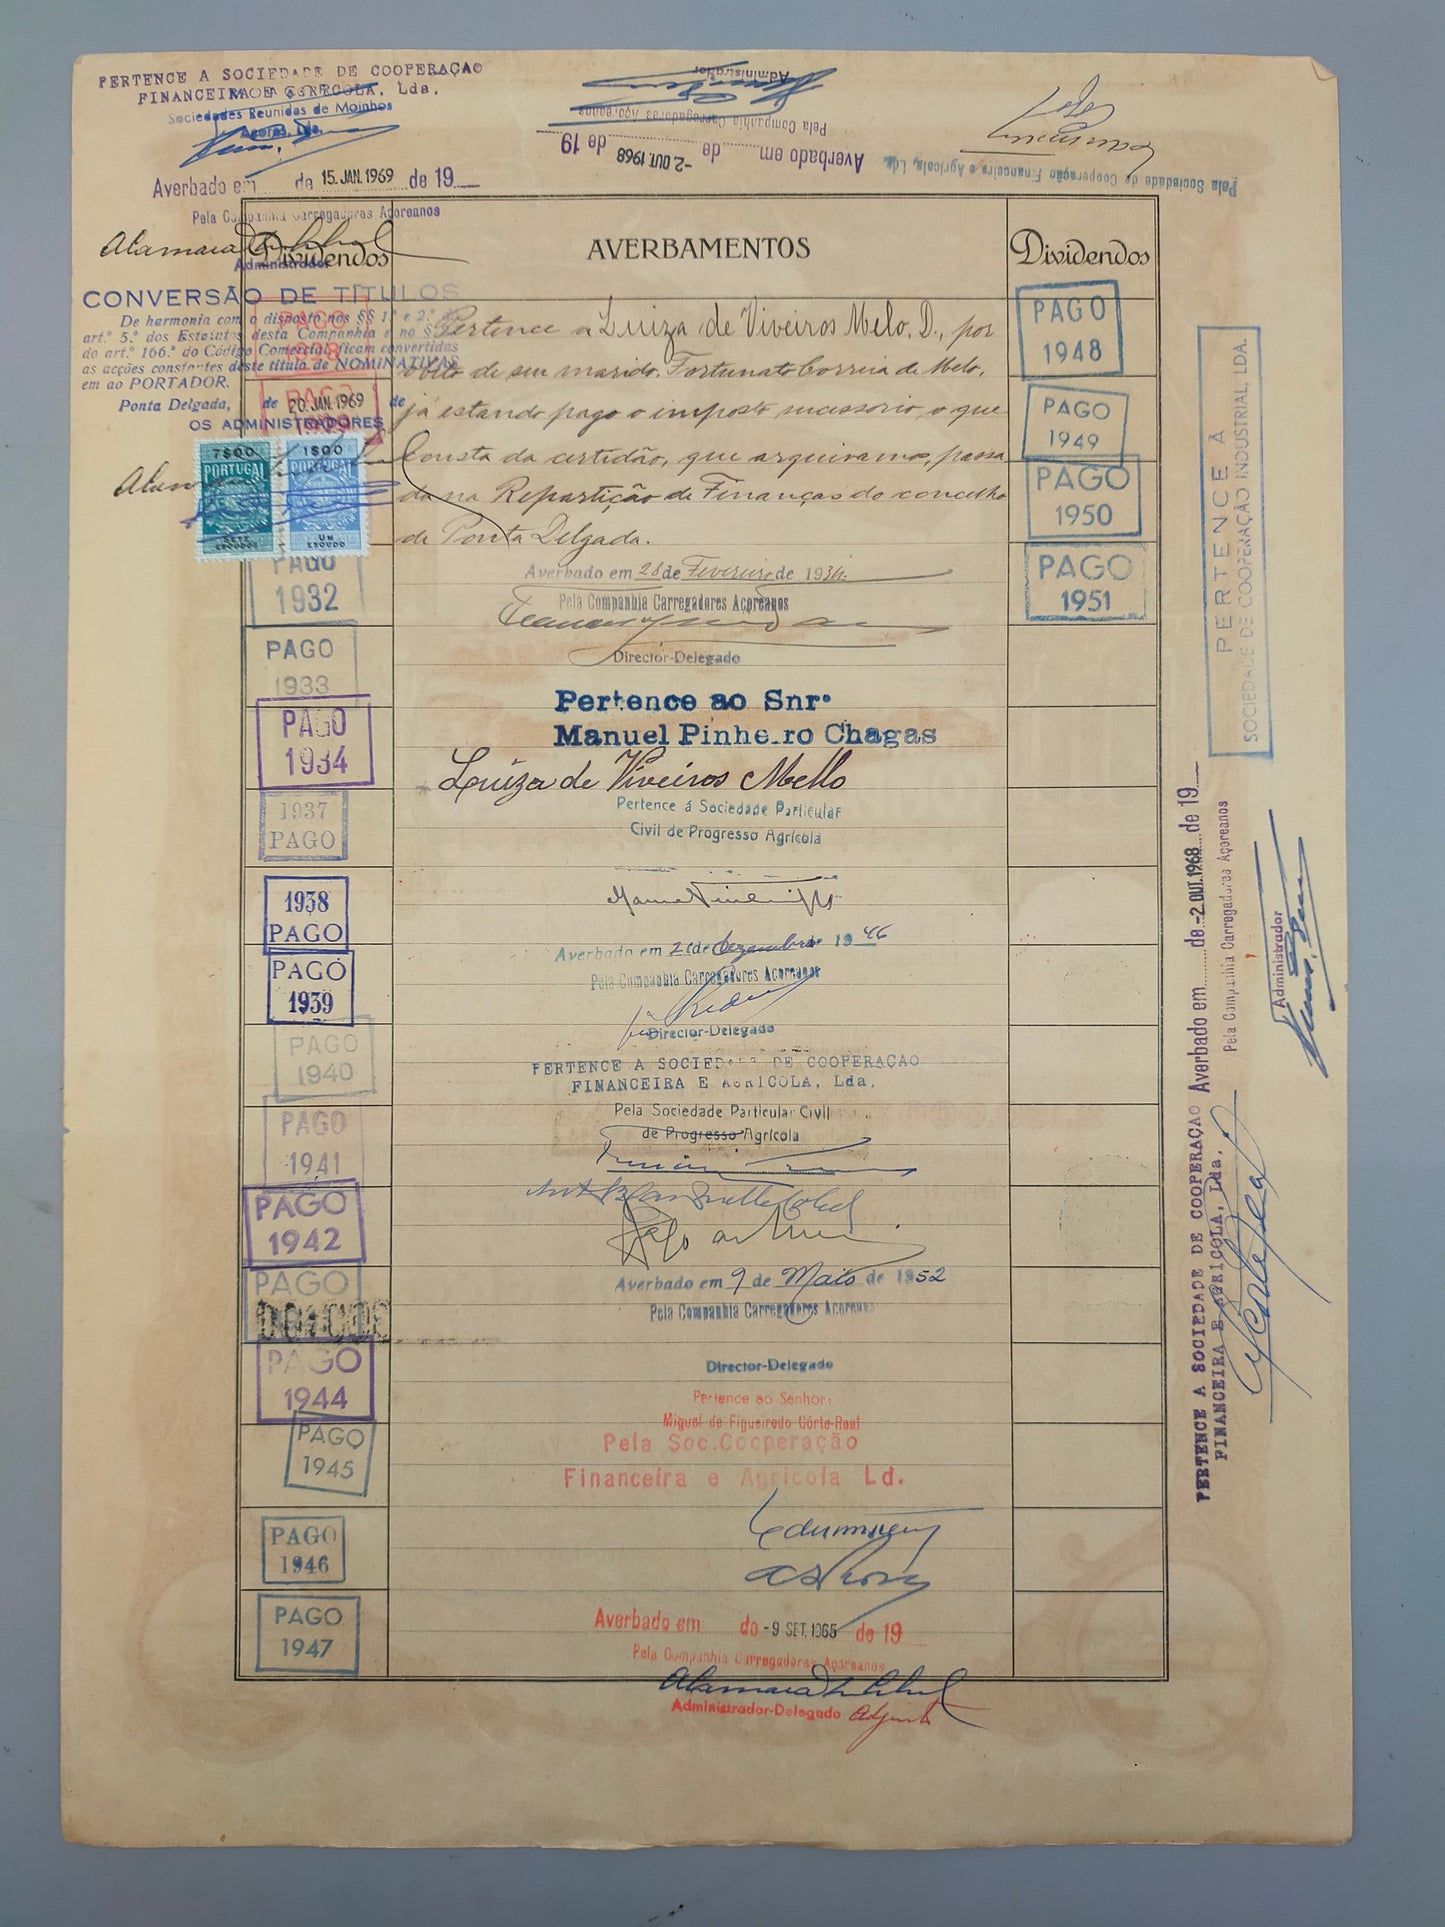 PERTENCE A SOCIEDADE DE COOPERAÇÃO
FINANCEIRA E AGRICOLA, Lda,
Sociedades Reunidas de Moinhos
Açores, Lda.
Averbado em de 15. JAN. 1969 de 19
Pela Companhia Carregadores Açoreanos
Administrador
CONVERSÃO DE TÍTULOS
De harmonia com o disposto nos §§ 1.º e 2.º do
art.º 5.º dos Estatutos desta Companhia e no §
do art.º 166.º do Código Comercial, ficam convertidas
as acções constantes deste título de NOMINATIVAS
em ao PORTADOR.
Ponta Delgada, de 20. JAN. 1969 de
OS ADMINISTRADORES
7$00
PORTUGAL
SETE
ESCUDOS
1$00
PORTUGAL
UM
ESCUDO
Administrador
Pela Companhia Carregadores Açoreanos
Averbado em de -2. OUT. 1968 de 19
Pela Sociedade de Cooperação Financeira e Agrícola, Lda
Dividendos
AVERBAMENTOS
Dividendos
PAGO
PAGO
PAGO
1932
PAGO
1933
PAGO
1934
1937
PAGO
1938
PAGO
PAGO
1939
PAGO
1940
PAGO
1941
PAGO
1942
PAGO
PAGO
1944
PAGO
1945
PAGO
1946
PAGO
1947
Pertence a Luiza de Viveiros Melo, D., por
obito de seu marido, Fortunato Correia de Melo,
já estando pago o imposto sucessorio, o que
consta da certidão, que arquivamos, passa
da na Repartição de Finanças do concelho
de Ponta Delgada.
Averbado em 28 de Fevereiro de 1934
Pela Companhia Carregadores Açoreanos
Director-Delegado
Pertence ao Snr.
Manuel Pinheiro Chagas
Luiza de Viveiros Mello
Pertence á Sociedade Particular
Civil de Progresso Agrícola
Averbado em de Dezembro de 1946
Pela Companhia Carregadores Açoreanos
Director-Delegado
PERTENCE A SOCIEDADE DE COOPERAÇÃO
FINANCEIRA E AGRICOLA, Lda,
Pela Sociedade Particular Civil
de Progresso Agrícola
Averbado em 9 de Maio de 1952
Pela Companhia Carregadores Açoreanos
Director-Delegado
Pertence ao Senhor:
Miguel de Figueiredo Côrte-Real
Pela Soc. Cooperação
Financeira e Agrícola Ld.
Averbado em de -9 SET. 1965 de 19
Pela Companhia Carregadores Açoreanos
Administrador-Delegado
PAGO
1948
PAGO
1949
PAGO
1950
PAGO
1951
PERTENCE A
SOCIEDADE DE COOPERAÇÃO INDUSTRIAL, LDA.
PERTENCE A SOCIEDADE DE COOPERAÇÃO
FINANCEIRA E AGRICOLA, Lda.
Averbado em de -2. OUT. 1968 de 19
Pela Companhia Carregadores Açoreanos
Administrador